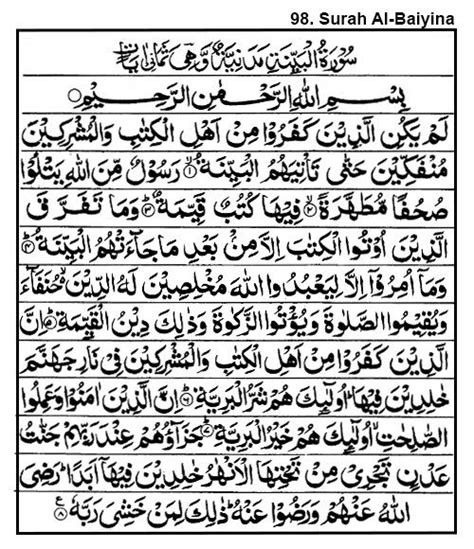 98. Surah Al-Baiyina
سُوْرَةُ الْبَيِّنَةِ مَدَنِيَّةٌ وَّهِیَ ثَمَانِیْ اٰيَاتٍ
بِسْمِ اللهِ الرَّحْمٰنِ الرَّحِيْمِ ○
لَمْ يَكُنِ الَّذِيْنَ كَفَرُوْا مِنْ اَهْلِ الْكِتٰبِ وَالْمُشْرِكِيْنَ
مُنْفَكِّيْنَ حَتّٰى تَاْتِيَهُمُ الْبَيِّنَةُ ۙ﴿۱﴾ رَسُوْلٌ مِّنَ اللهِ يَتْلُوْا
صُحُفًا مُّطَهَّرَةً ۙ﴿۲﴾ فِيْهَا كُتُبٌ قَيِّمَةٌ ؕ﴿۳﴾ وَمَا تَفَرَّقَ
الَّذِيْنَ اُوْتُوا الْكِتٰبَ اِلَّا مِنْۢ بَعْدِ مَا جَآءَتْهُمُ الْبَيِّنَةُ ؕ﴿۴﴾
وَمَاۤ اُمِرُوْۤا اِلَّا لِيَعْبُدُوا اللهَ مُخْلِصِيْنَ لَهُ الدِّيْنَ ۙ حُنَفَآءَ
وَيُقِيْمُوا الصَّلٰوةَ وَيُؤْتُوا الزَّكٰوةَ وَذٰلِكَ دِيْنُ الْقَيِّمَةِ ؕ﴿۵﴾ اِنَّ
الَّذِيْنَ كَفَرُوْا مِنْ اَهْلِ الْكِتٰبِ وَالْمُشْرِكِيْنَ فِیْ نَارِ جَهَنَّمَ
خٰلِدِيْنَ فِيْهَا ؕ اُولٰٓئِكَ هُمْ شَرُّ الْبَرِيَّةِ ؕ﴿۶﴾ اِنَّ الَّذِيْنَ اٰمَنُوْا وَعَمِلُوا
الصّٰلِحٰتِ ۙ اُولٰٓئِكَ هُمْ خَيْرُ الْبَرِيَّةِ ؕ﴿۷﴾ جَزَآؤُهُمْ عِنْدَ رَبِّهِمْ جَنّٰتُ
عَدْنٍ تَجْرِیْ مِنْ تَحْتِهَا الْاَنْهٰرُ خٰلِدِيْنَ فِيْهَاۤ اَبَدًا ؕ رَضِیَ
اللهُ عَنْهُمْ وَرَضُوْا عَنْهُ ؕ ذٰلِكَ لِمَنْ خَشِیَ رَبَّهٗ ﴿۸﴾ ع